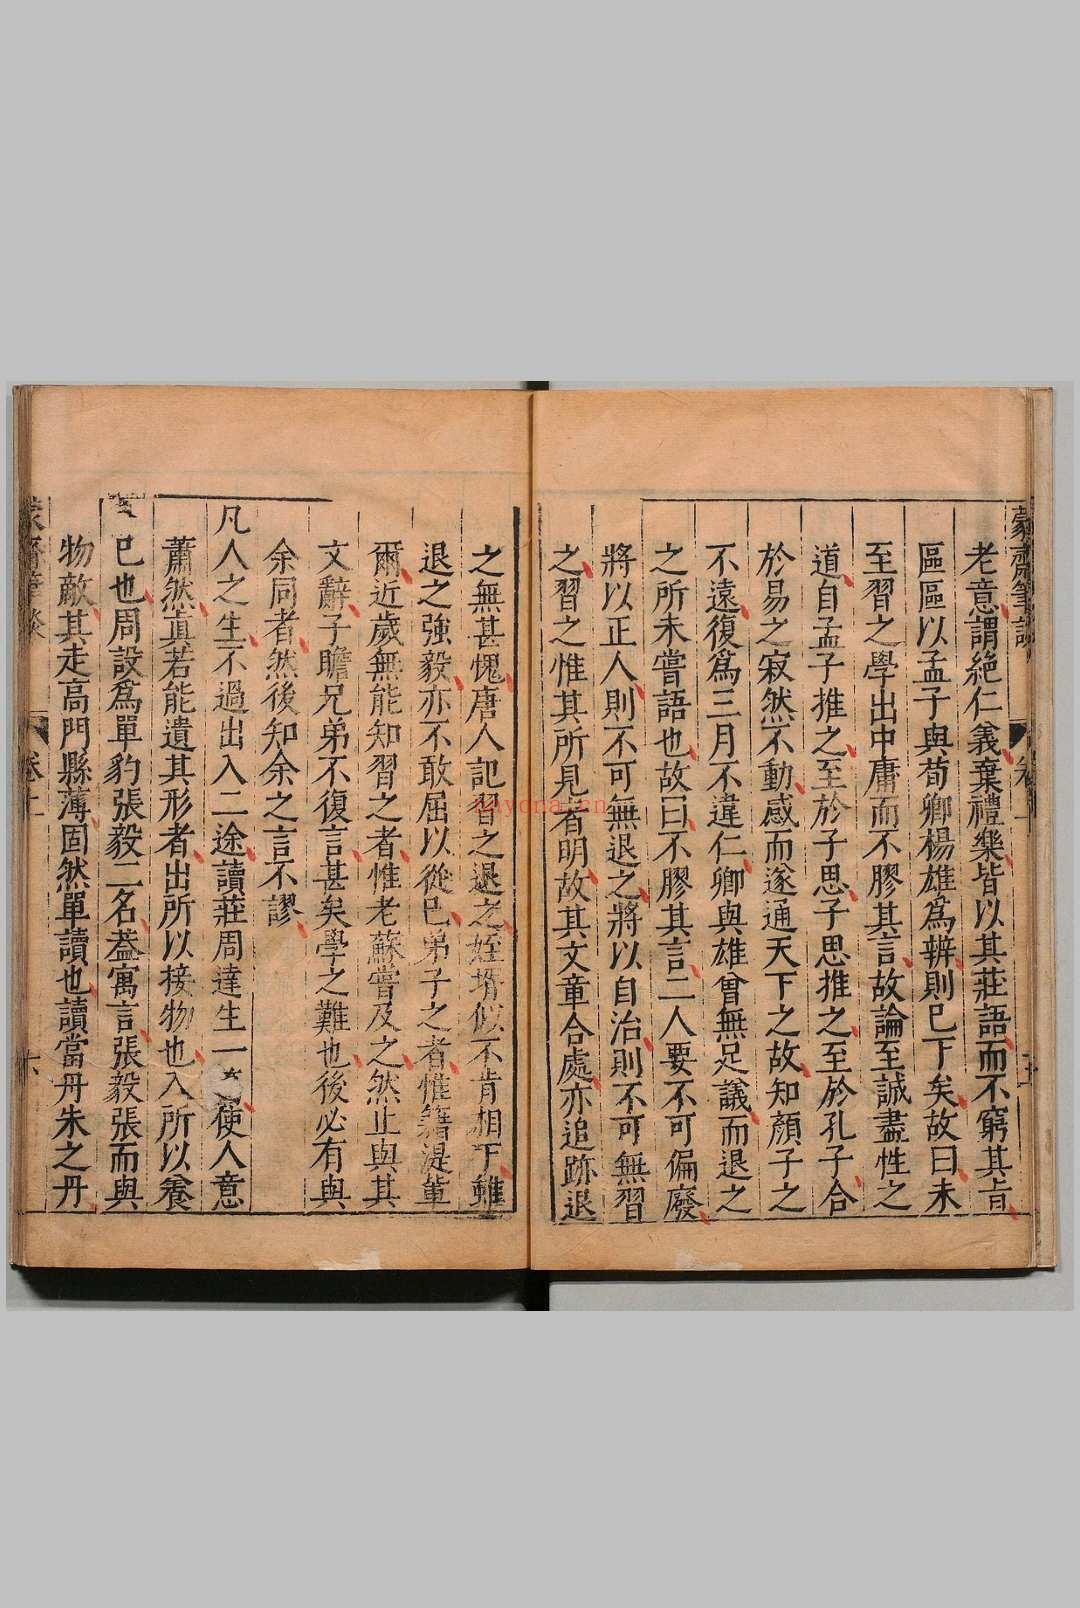 蒙齋筆談
老意謂絕仁義棄禮樂皆以其莊語而不窮其旨
區區以孟子與荀卿楊雄爲辨則已下矣故曰未
至習之學出中庸而不膠其言故論至誠盡性之
道自孟子推之至於子思子思推之至於孔子合
於易之寂然不動感而遂通天下之故知顏子之
不遠復爲三月不違仁卿與雄曾無足議而退之
之所未嘗語也故曰不膠其言二人要不可偏廢
將以正人則不可無退之將以自治則不可無習
之習之惟其所見者明故其文章合處亦追跡退
之無甚愧唐人記習之退之姪壻似不肯相下雖
退之強毅亦不敢屈以從已弟子之者惟籍湜輩
爾近歲無能知習之者惟老蘇嘗及之然止與其
文辭子瞻兄弟不復言甚矣學之難也後必有與
余同者然後知余之言不謬
凡人之生不過出入二途讀莊周達生一使人意
蕭然真若能遺其形者出所以接物也入所以養
已也周設爲單豹張毅二名葢寓言張毅張而與
物敵其走高門縣薄固然單讀也讀當丹朱之丹
蒙齋筆談 卷上 六